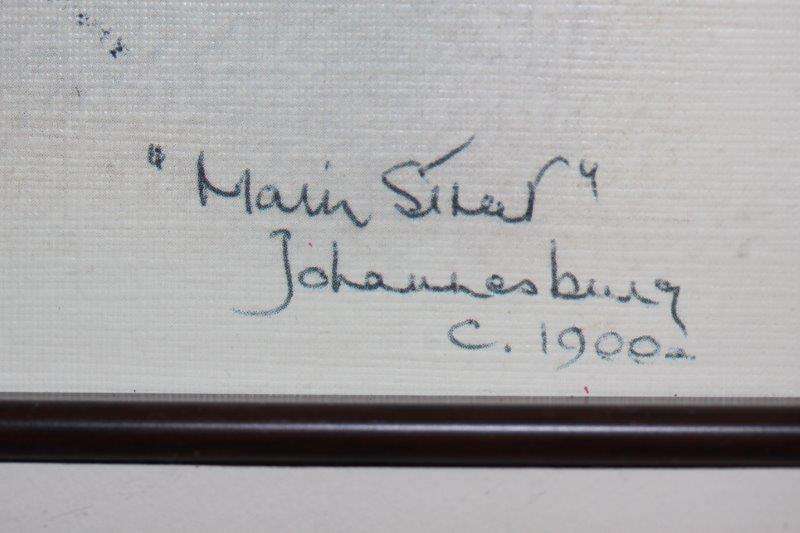 "Main Street"
Johannesburg
c. 1900.